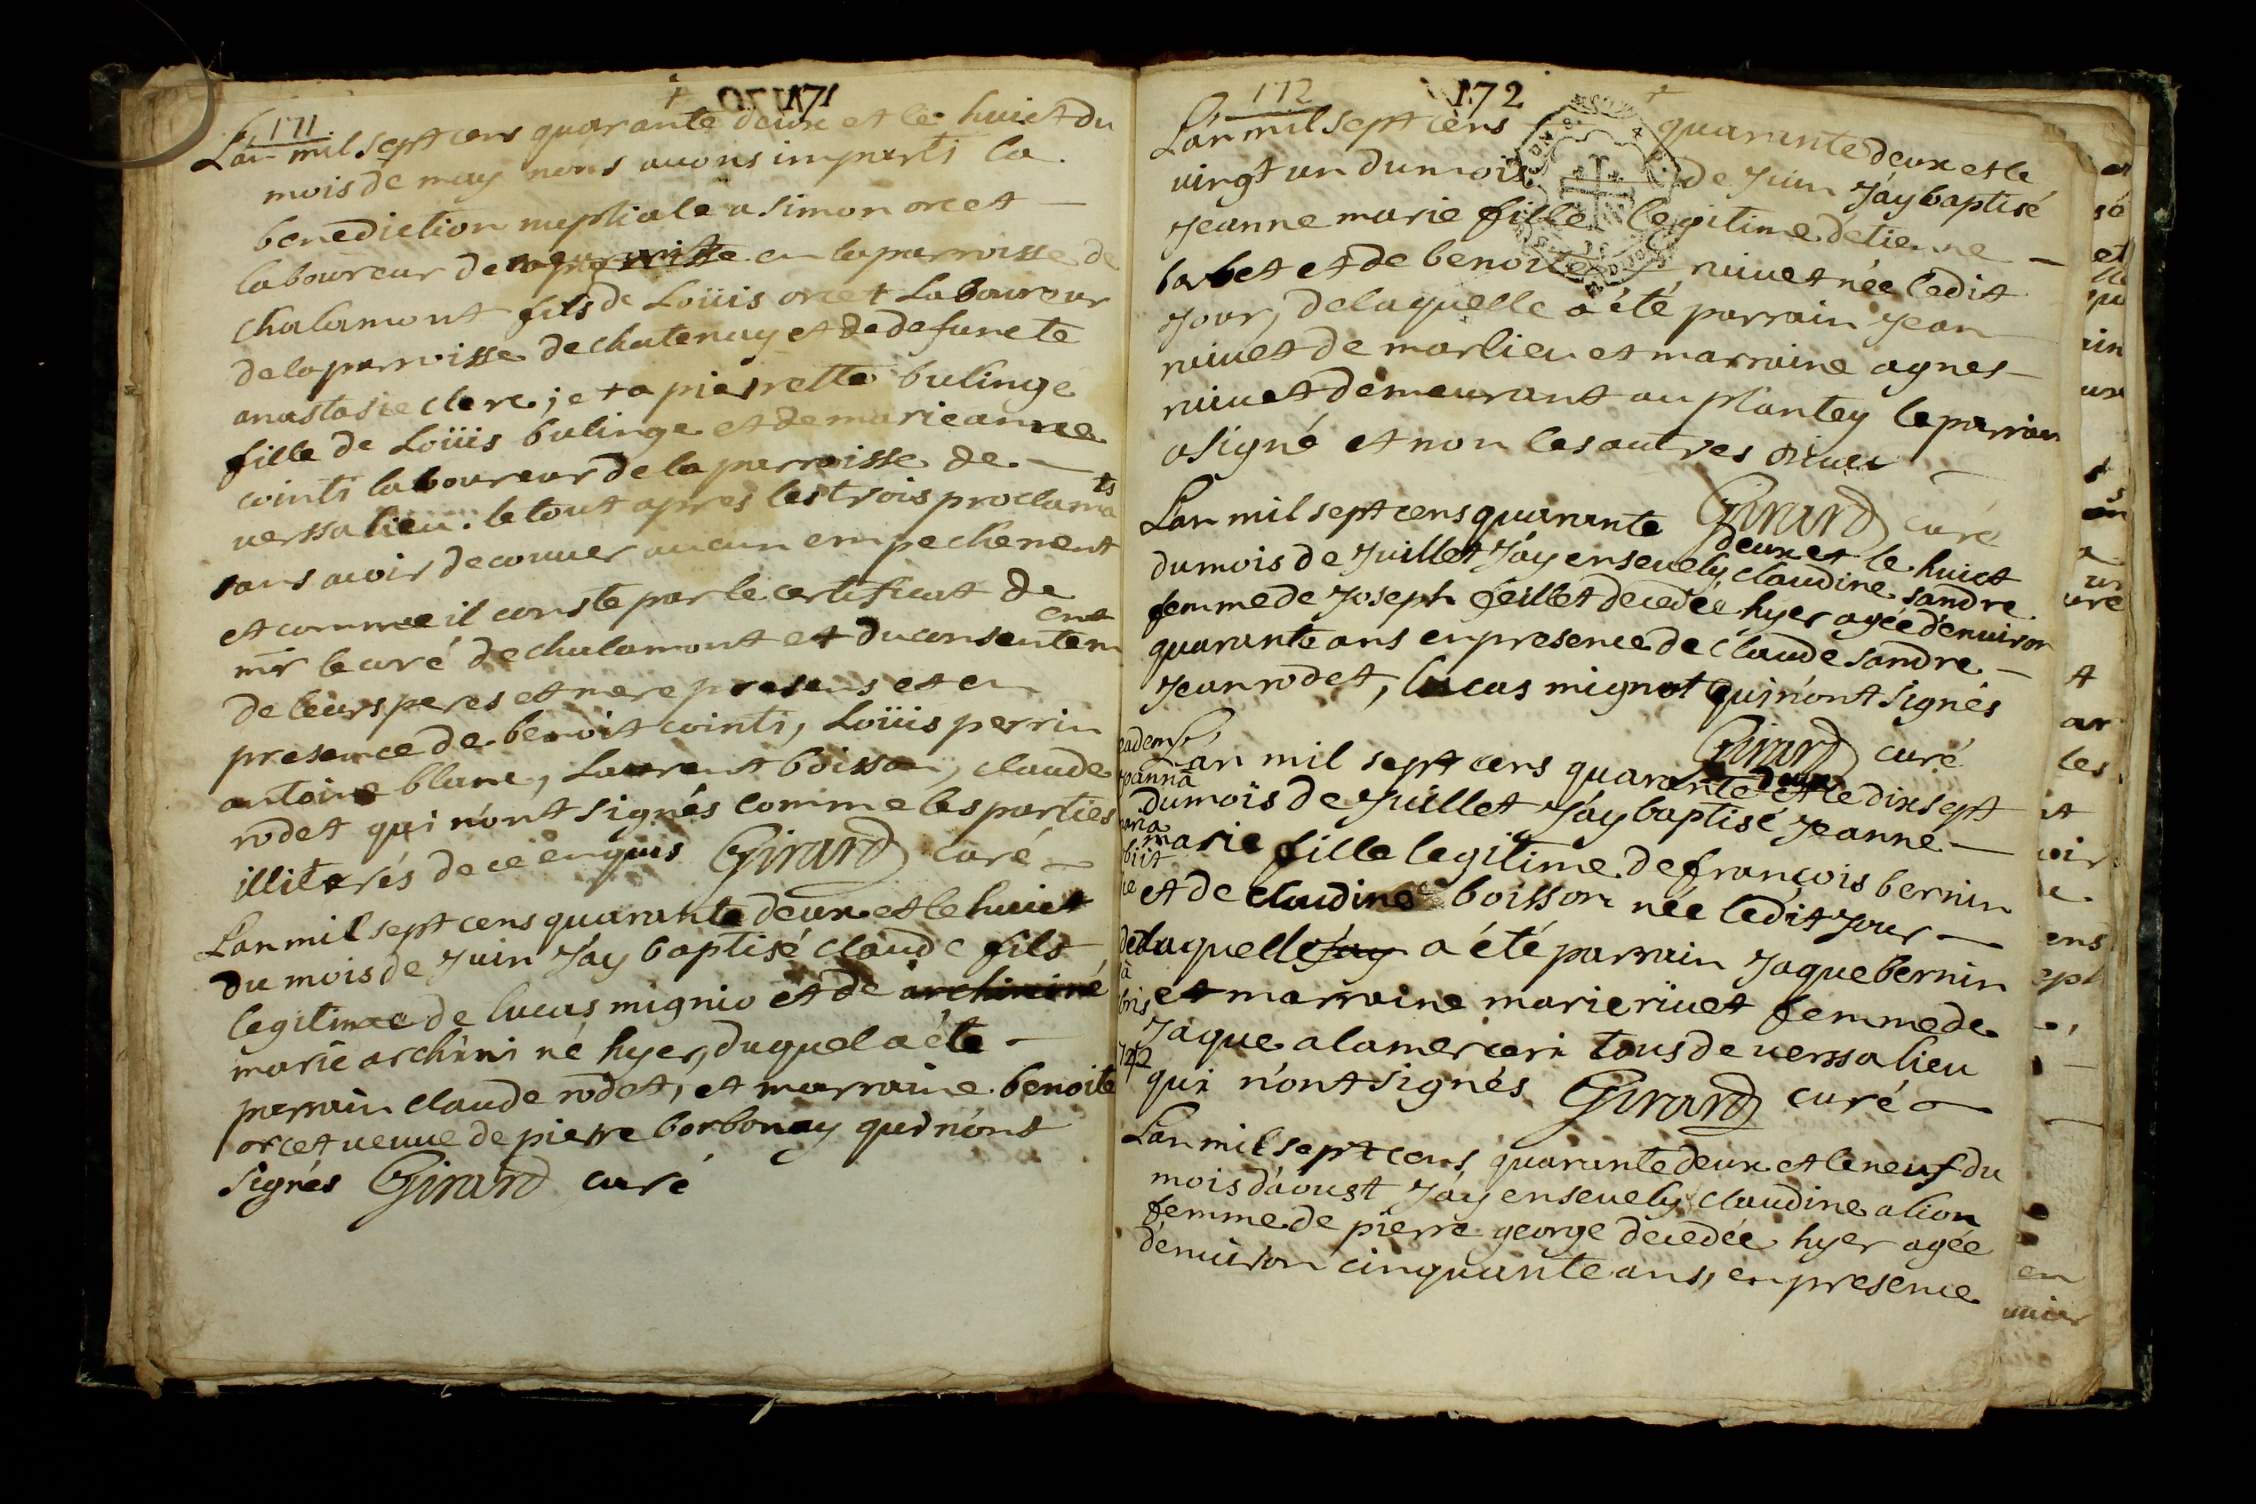 171
171
L'an mil sept cens quarante deux et le huict du
mois de may nous auons imparti la
benediction nuptiale a simon orcet
laboureur de en la parroisse de
chalamont fils de Loüis orcet Laboureur
de la parroisse de chatenay et de defuncte
anastasie clerc; et a pierrette bulinge
fille de Loüis bulinge et de marie anne
cointi laboureur de la parroisse de
uerssalieu. le tout apres les trois proclama
ts
sans auoir decouuer aucun empechement
et comme il conste par le certificat de
mr le curé de chalamont et du consentem
ent
de leurs peres et mere presens et en
presence de benoit cointi, Loüis perrin
antoine blanc, Laurent boisson, claude
rodet qui n'ont signés comme les parties
illiterés de ce enquis Girard curé
L'an mil sept cens quarante deux et le huict
du mois de Juin J'ay baptisé claude fils
legitime de lucas mignio et de archinine
marie archini né hyer, duquel a été
parrain claude rodet, et marraine benoite
orcet ueuue de pierre borbonay qui n'ont
signés Girard curé
172
172
L'an mil sept cens quarante deux et le
uingt un du mois de Juin J'ay baptisé
Jeanne marie fille legitime d'étienne
barbet et de benoite riuuet née ledit
Jour, de laquelle a été parrain Jean
riuuet de marlieu et marraine agnes
riuuet demeurant au plantey le parrain
a signé et non les autres
Girard curé
L'an mil sept cens quarante deux et le huict
du mois de Juillet J'ay enseuely claudine sandre
femme de Joseph feillet decedée hyer agée d'enuiron
quarante ans en presence de claude sandre
Jean rodet, lucas mignot qui n'ont signés
Girard curé
L'an mil sept cens quarante deux et le dix sept
du mois de Juillet J'ay baptisé Jeanne
marie fille legitime de françois bernin
et de claudine boisson née ledit Jour
de laquelle j'ay a été parrain Jaque bernin
et marraine marie riuet femme de
Jaque alamerceri tous de uerssalieu
qui n'ont signés Girard curé
L'an mil sept cens quarante deux et le neuf du
mois d'aoust J'ay enseuely claudine alion
femme de pierre george decedée hyer agée
d'enuiron cinquante ans, en presence